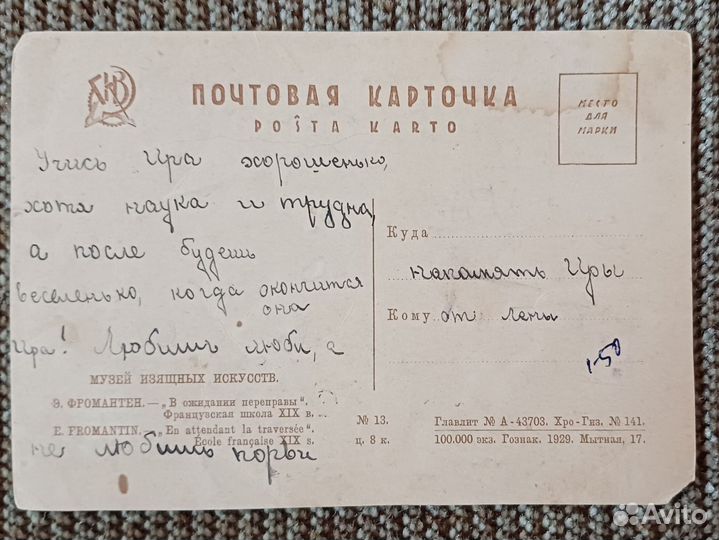 АХРР
ПОЧТОВАЯ КАРТОЧКА
POŜTA KARTO
МЕСТО
ДЛЯ
МАРКИ
Учись Ира хорошенько,
хотя наука и трудна,
а после будешь
веселенько, когда окончится
она
Ира! Любишь люби, а
не любишь порви
МУЗЕЙ ИЗЯЩНЫХ ИСКУССТВ.
Э. ФРОМАНТЕН.—„В ожидании переправы“.
Французская школа XIX в.
E. FROMANTIN.—„En attendant la traversée“.
École française XIX s.
№ 13.
ц. 8 к.
Куда
на память Иры
Кому от Лены
1-50
Главлит № А-43703. Хро-Гиз. № 141.
100.000 экз. Гознак. 1929. Мытная, 17.
Avito